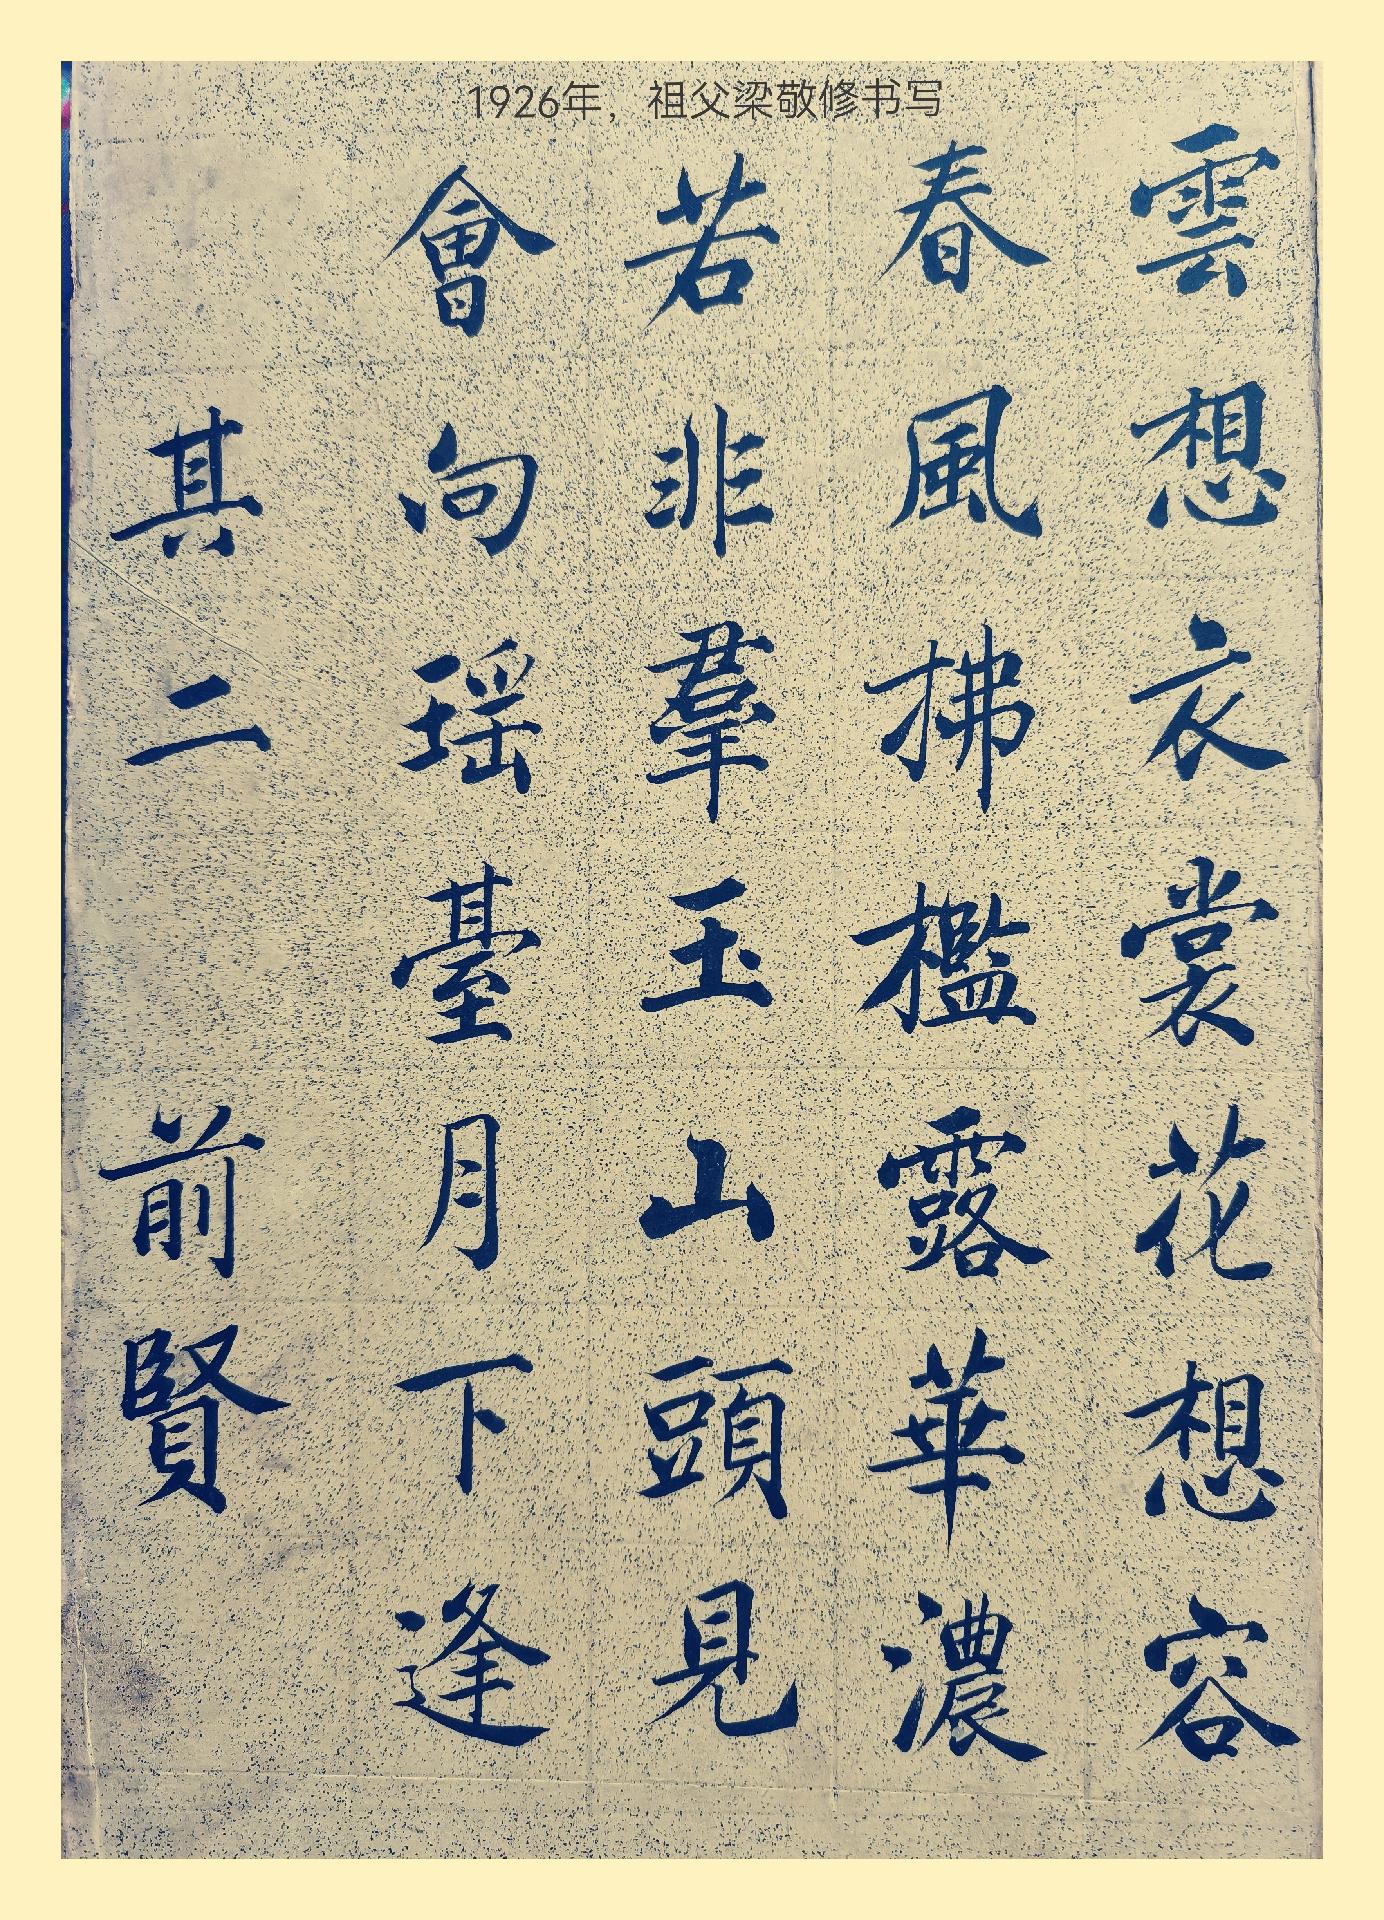 1926年，祖父梁敬修书写
雲想衣裳花想容
春風拂檻露華濃
若非羣玉山頭見
會向瑶臺月下逢
其二 前賢